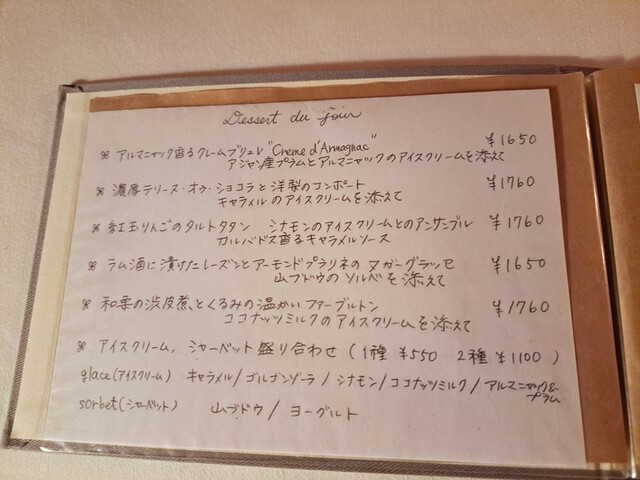 Dessert du jour
※ アルマニャック香るクレームブリュレ "Crème d'Armagnac" ¥1650
アジャン産プラムとアルマニャックのアイスクリームを添えて
※ 濃厚テリーヌ・オゥ・ショコラと洋梨のコンポート ¥1760
キャラメルのアイスクリームを添えて
※ 紅玉りんごのタルトタタン シナモンのアイスクリームとのアンサンブル ¥1760
カルバドス香るキャラメルソース
※ ラム酒に漬けたレーズンとアーモンドプラリネのヌガーグラッセ ¥1650
山ブドウのソルベを添えて
※ 和栗の渋皮煮、とくるみの温かいファーブルトン ¥1760
ココナッツミルクのアイスクリームを添えて
※ アイスクリーム, シャーベット盛り合わせ (1種 ¥550 2種 ¥1100 )
glace(アイスクリーム) キャラメル/ゴルゴンゾーラ/シナモン/ココナッツミルク/アルマニャック&プラム
sorbet(シャーベット) 山ブドウ / ヨーグルト